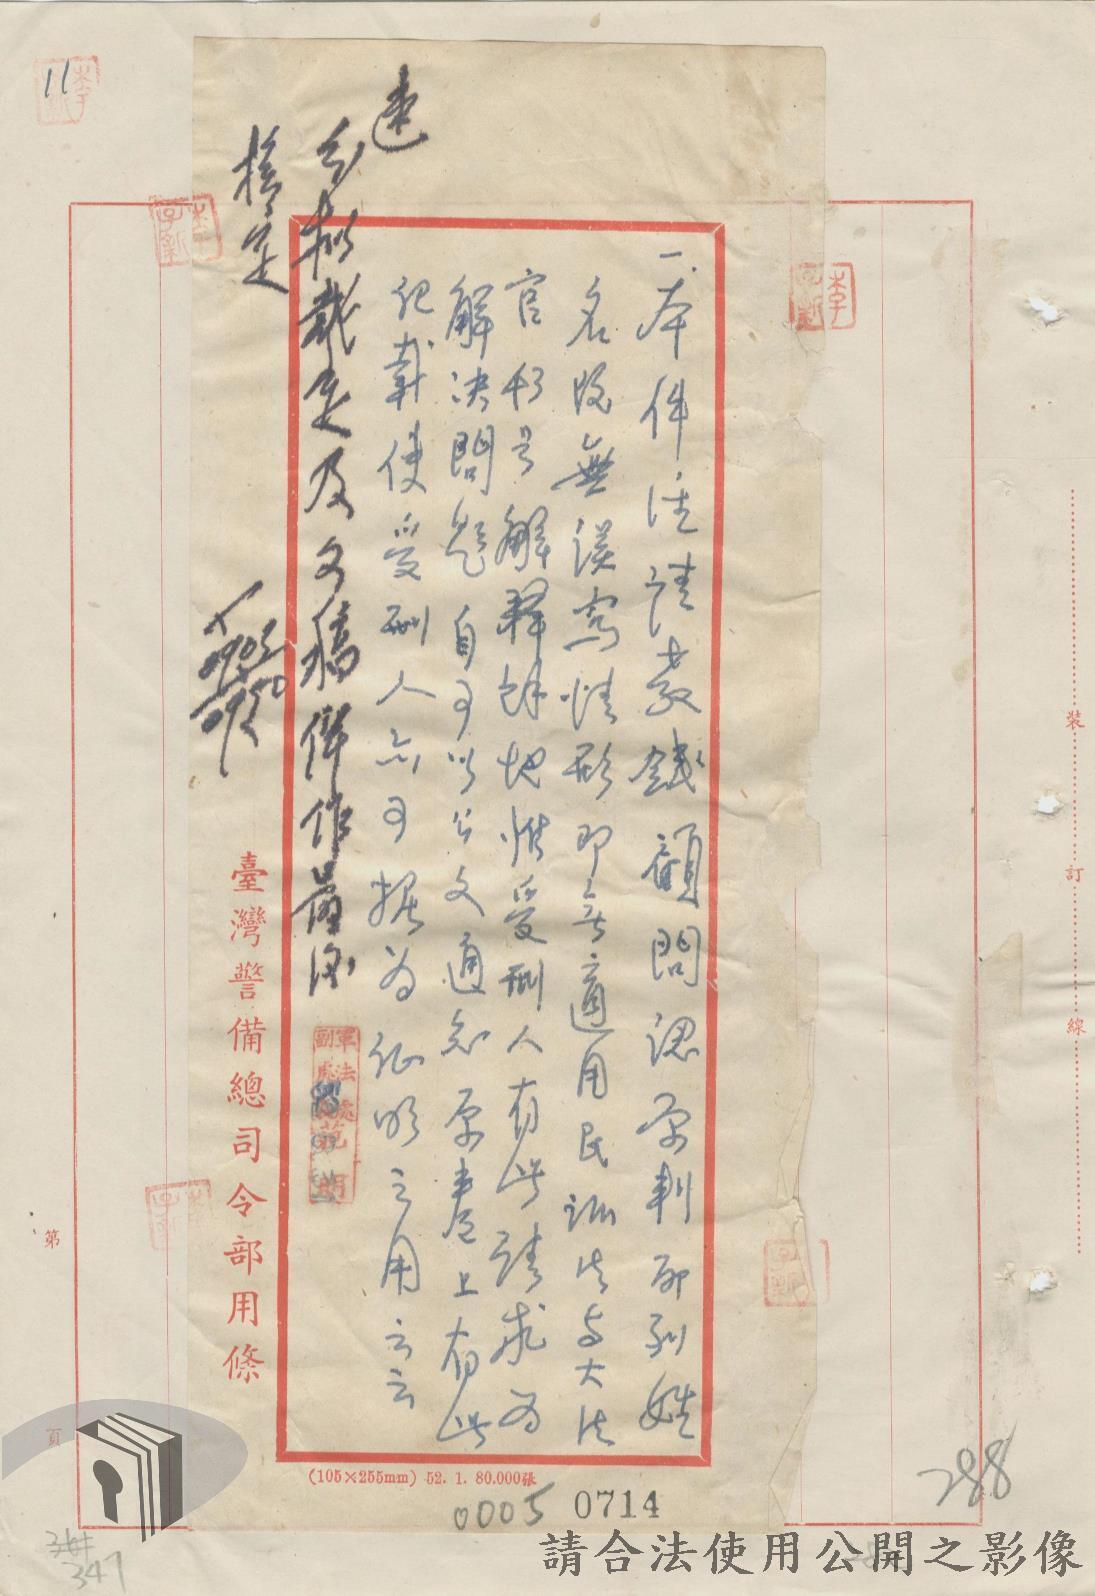 速
一、本件注請教錢顧問認原判所列姓
名既無误寫情形即無適用民訴法与大法
官釋字解釋餘地惟受刑人有此請求为
解决問題自可以公文通知原書上有此
記載使受刑人亦可据为証明之用云云
裁定及文稿併作
核定
0903
0950
軍法處副處長范明
臺灣警備總司令部用條
(105×255mm) 52. 1. 80.000張
0005 0714
11
李子新
李子新
李子新
李子新
裝
訂
線
第
頁
288
347
請合法使用公開之影像